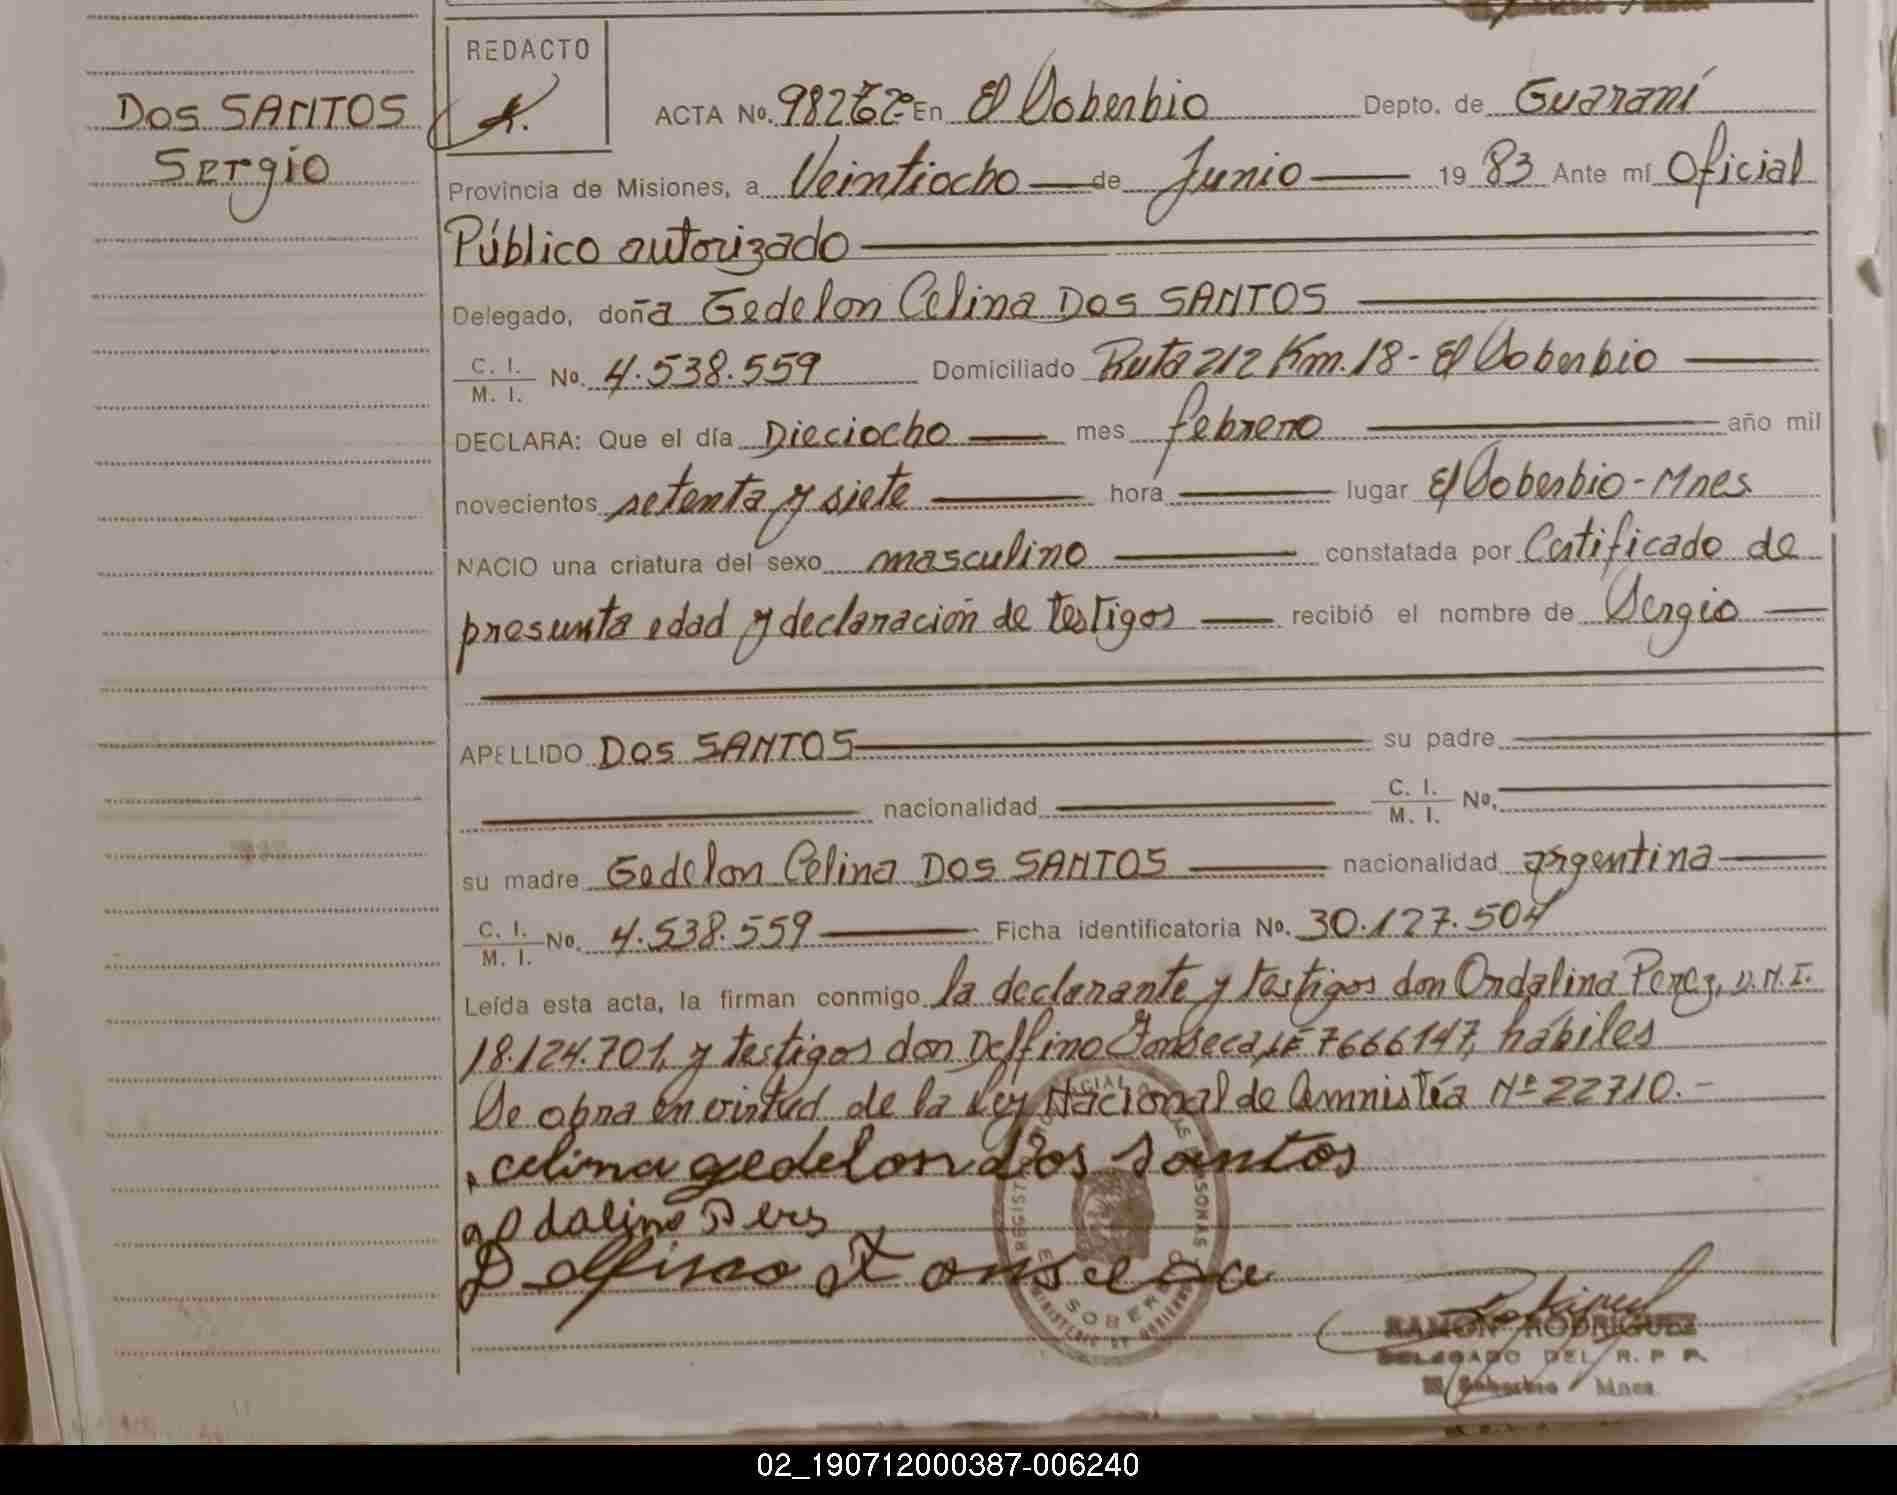 Dos SANTOS
Sergio
REDACTO
ACTA No. En El Soberbio Depto. de Guaraní
Provincia de Misiones, a Veintiocho de Junio 19 83 Ante mí Oficial
Público autorizado
Delegado, doña Gedelon Celina DOS SANTOS
C. I. / M. I. No. 4.538.559 Domiciliado Ruta 212 Km. 18 - El Soberbio
DECLARA: Que el día Dieciocho mes febrero año mil
novecientos setenta y siete hora lugar El Soberbio - Mnes
NACIO una criatura del sexo masculino constatada por Certificado de
presunta edad y declaración de testigos recibió el nombre de Sergio
APELLIDO DOS SANTOS su padre
nacionalidad C. I. / M. I. No.
su madre Gedelon Celina DOS SANTOS nacionalidad argentina
C. I. / M. I. No. 4.538.559 Ficha identificatoria No. 30.127.504
Leída esta acta, la firman conmigo la declarante y testigos don Ondalina Perez, D.N.I.
18.124.701, y testigos don Delfino Fonseca, LE 7666147, hábiles
Se obra en virtud de la Ley Nacional de Amnistía Nº 22710.-
celina gedelon dos santos
Delfino Fonseca
RAMON RODRIGUEZ
DELEGADO DEL R. P. P.
El Soberbio Mnes
02_190712000387-006240